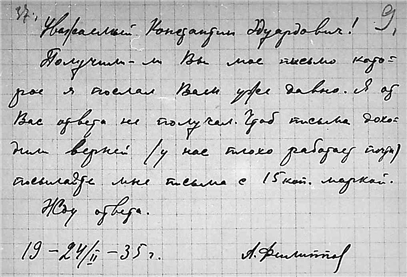 37.
9.
Уважаемый Константин Эдуардович!
Получили-ли Вы мое письмо кото-
рое я послал Вам уже давно. Я от
Вас ответа не получал. Чтоб письма дохо-
дили верней (у нас плохо работает почта)
посылайте мне письма с 15 коп. маркой.
Жду ответа.
19 – 24/II – 35 г.
А. Филиппов